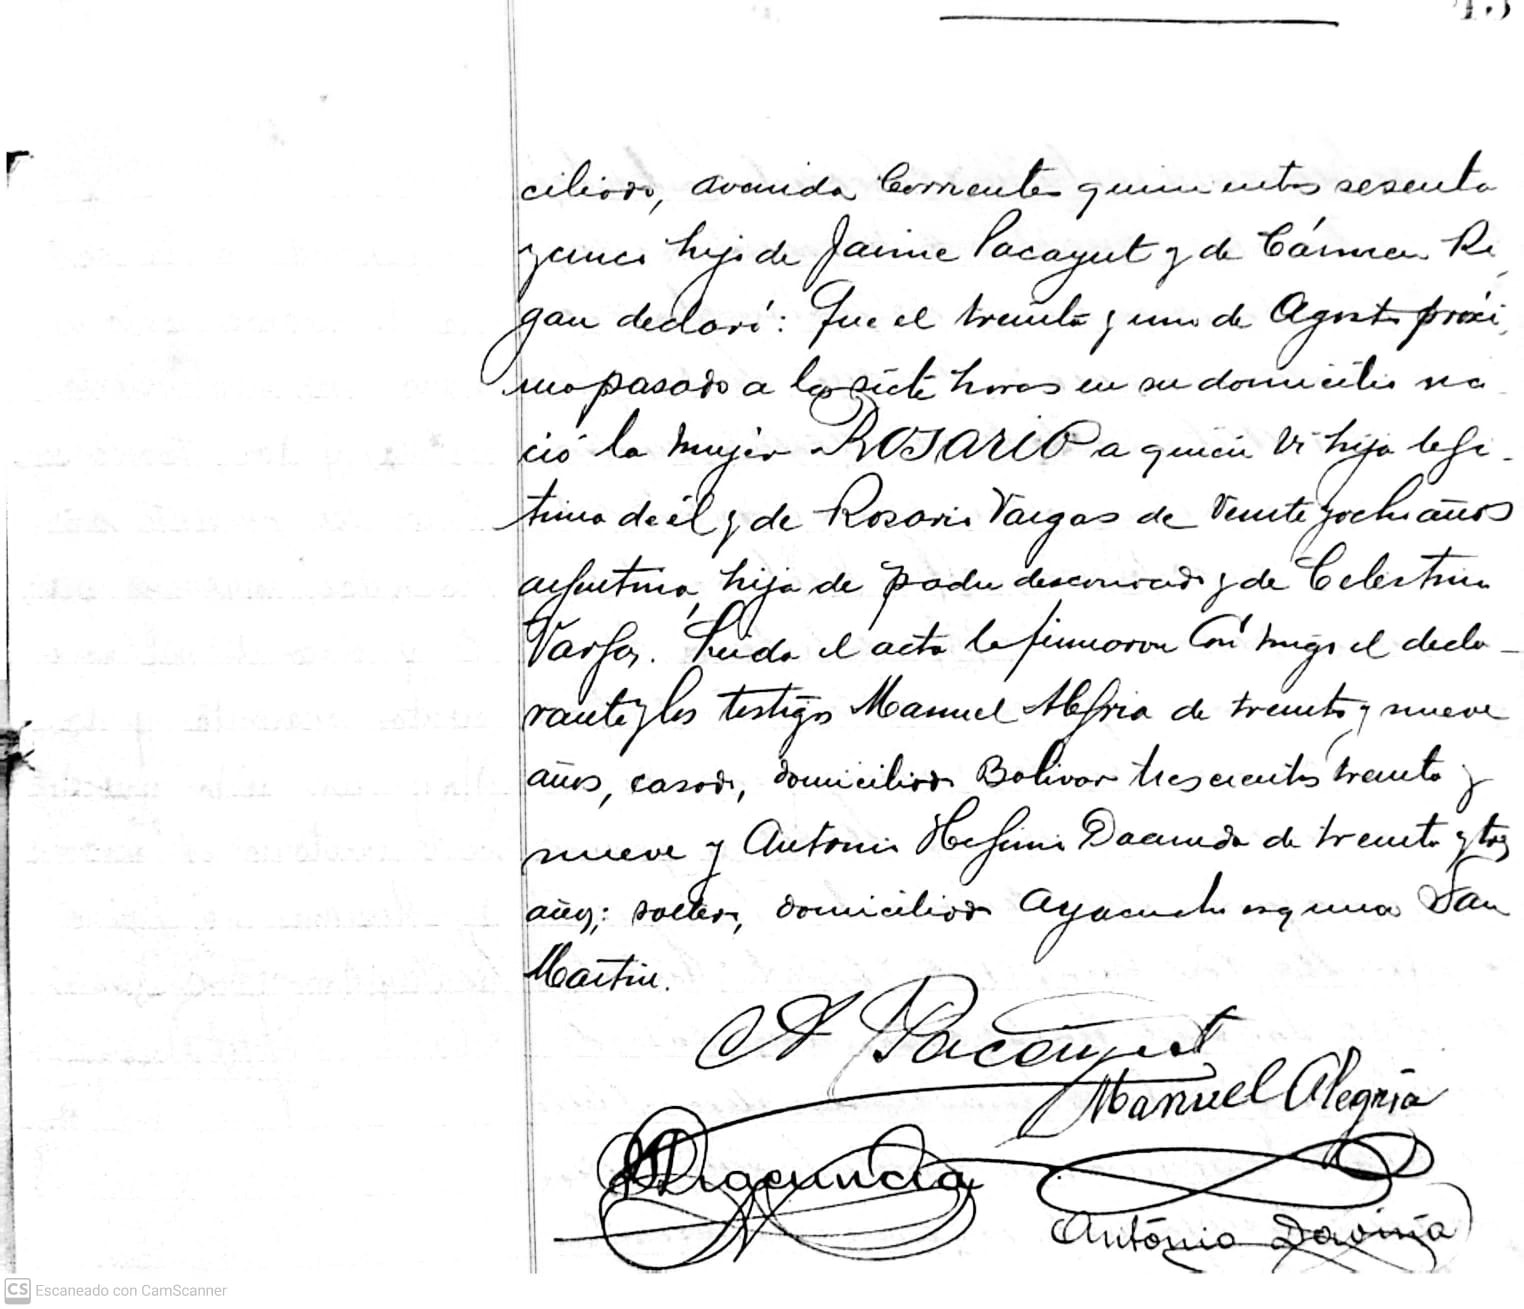 ciliado, avenida Corrientes quinientos sesenta
y cinco hijo de Jaime Pacayut y de Cármen Ri
gau declaró: Que el treinta y uno de Agosto próxi
mo pasado a las siete horas en su domicilio na-
ció la mujer ROSARIO a quien ví hija legí-
tima de él y de Rosario Vargas de veinte y ocho años
argentina, hija de padre desconocido y de Celestina
Vargas. Leida el acta la firmaron conmigo el decla-
rante y los testigos Manuel Alegria de treinta y nueve
años, casado, domiciliado Bolivar trescientos treinta y
nueve y Antonio Dacunda de treinta y tres
años; soltero, domiciliado Ayacucho esquina San
Martin.
A Pacayut
Manuel Alegria
Antonio
Escaneado con CamScanner
CS